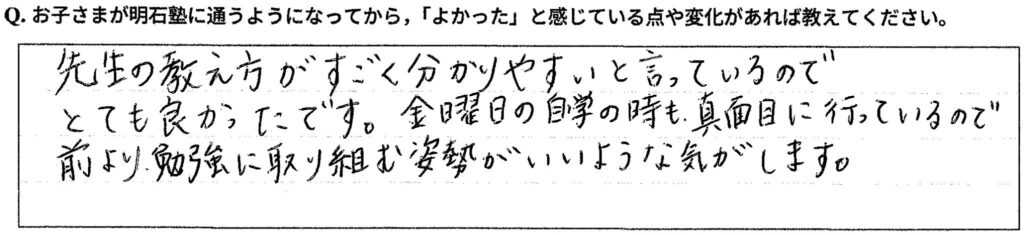 Q. お子さまが明石塾に通うようになってから，「よかった」と感じている点や変化があれば教えてください。
先生の教え方がすごく分かりやすいと言っているので
とても良かったです。金曜日の自学の時も真面目に行っているので
前より勉強に取り組む姿勢がいいような気がします。